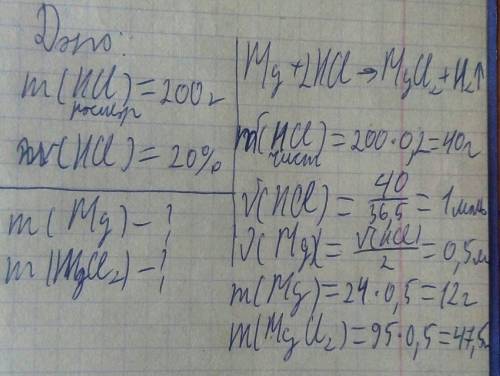 Дано:
m(HCl) = 200г
раствор
w(HCl) = 20%
m(Mg) - ?
m(MgCl₂) - ?
Mg + 2HCl → MgCl₂ + H₂↑
m(HCl) = 200·0,2 = 40г
чист
ν(HCl) = 40/36,5 = 1 моль
ν(Mg) = ν(HCl)/2 = 0,5м
m(Mg) = 24·0,5 = 12г
m(MgCl₂) = 95·0,5 = 47,5г